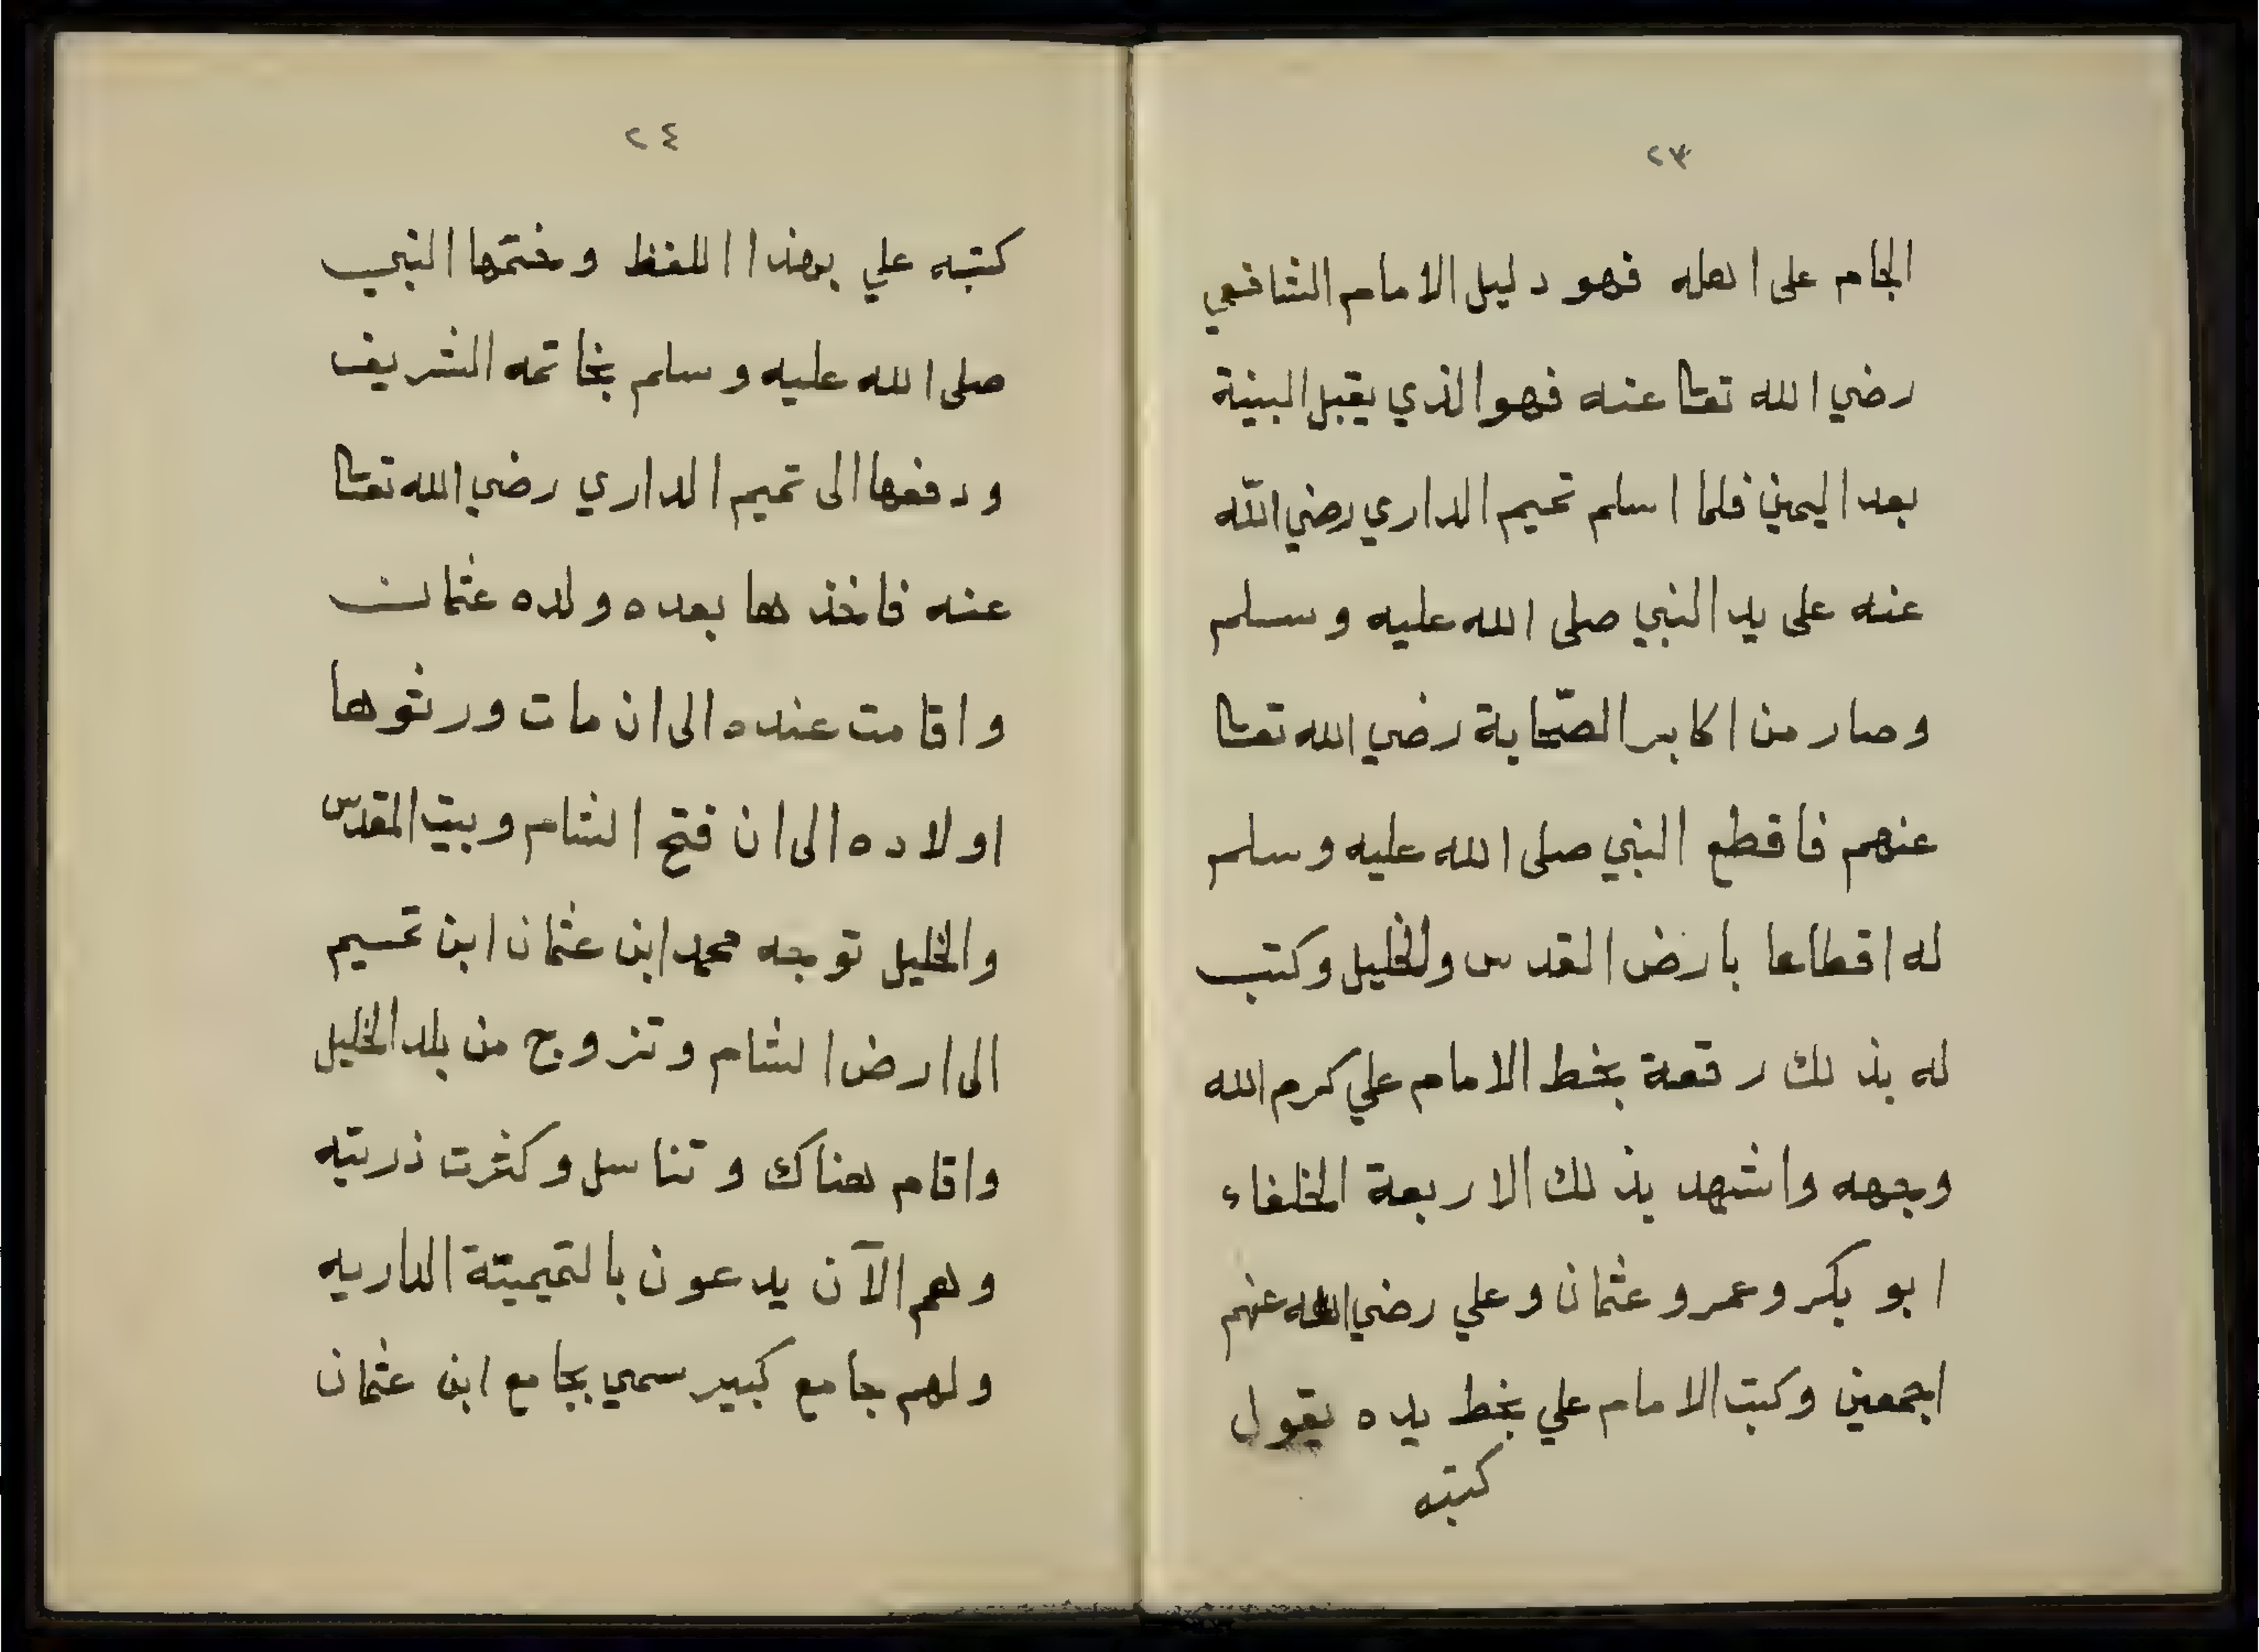 ٢٣
الجام على اهله فهو دليل الامام الشافعي
رضي الله تعا عنه فهو الذي يقبل البينة
بعد اليمين فلما اسلم تميم الداري رضي اللّه
عنه على يد النبي صلى الله عليه وسلم
وصار من اكابر الصّحابة رضي الله تعا
عنهم فاقطع النبي صلى الله عليه وسلم
له اقطاعا بارض القدس والخليل وكتب
له بذلك رقعة بخط الامام علي كرم الله
وجهه واشهد بذلك الاربعة الخلفاء
ابو بكر وعمر وعثمان وعلي رضي الله عنهم
اجمعين وكتب الامام علي بخط يده يقول
كتبه
٢٤
كتبه علي بهذا اللفظ وختمها النبي
صلى الله عليه وسلم بخاتمه الشريف
ودفعها الى تميم الداري رضي الله تعا
عنه فاخذها بعده ولده عثمان
واقامت عنده الى ان مات ورثوها
اولاده الى ان فتح الشام وبيت المقدس
والخليل توجه محمد ابن عثمان ابن تميم
الى ارض الشام وتزوج من بلد الخليل
واقام هناك وتناسل وكثرت ذريته
وهم الآن يدعون بالتميميتة الداريه
ولهم جامع كبير سمي بجامع ابن عثمان